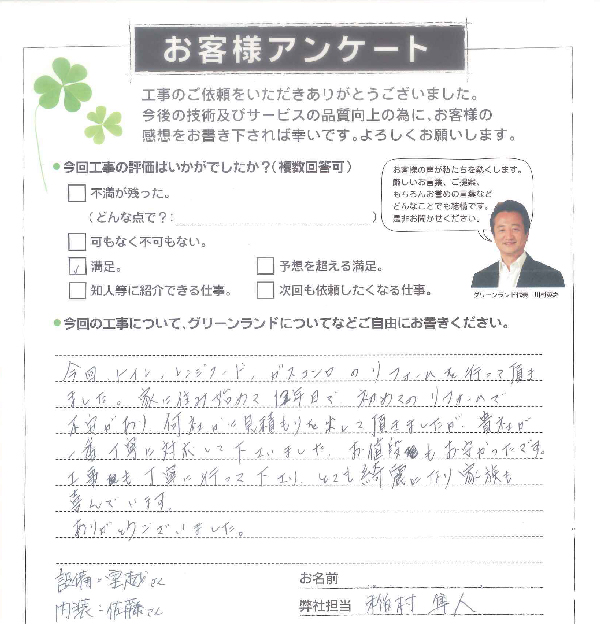 お客様アンケート
工事のご依頼をいただきありがとうございました。
今後の技術及びサービスの品質向上の為に、お客様の
感想をお書き下されば幸いです。よろしくお願いします。
今回工事の評価はいかがでしたか？（複数回答可）
お客様の声が私たちを熱くします。
厳しいお言葉、ご提案、
もちろんお誉めの言葉など
どんなことでも結構です。
是非お聞かせください。
不満が残った。
（どんな点で？： ）
可もなく不可もない。
満足。
予想を超える満足。
知人等に紹介できる仕事。
次回も依頼したくなる仕事。
グリーンランド代表
今回の工事について、グリーンランドについてなどご自由にお書きください。
今回、トイレ、レンジフード、ガスコンロのリフォームを行って頂き
ました。家に住み始めて 年目で初めてのリフォームで
不安があり何社かに見積もりを出して頂きましたが、貴社が
一番丁寧に対応して下さいましたし、お値段もお安かったです。
工事も丁寧に行って下さり、とても綺麗になり家族も
喜んでいます。
ありがとうございました。
設備: さん
内装:佐藤さん
お名前
弊社担当 稲村 隼人